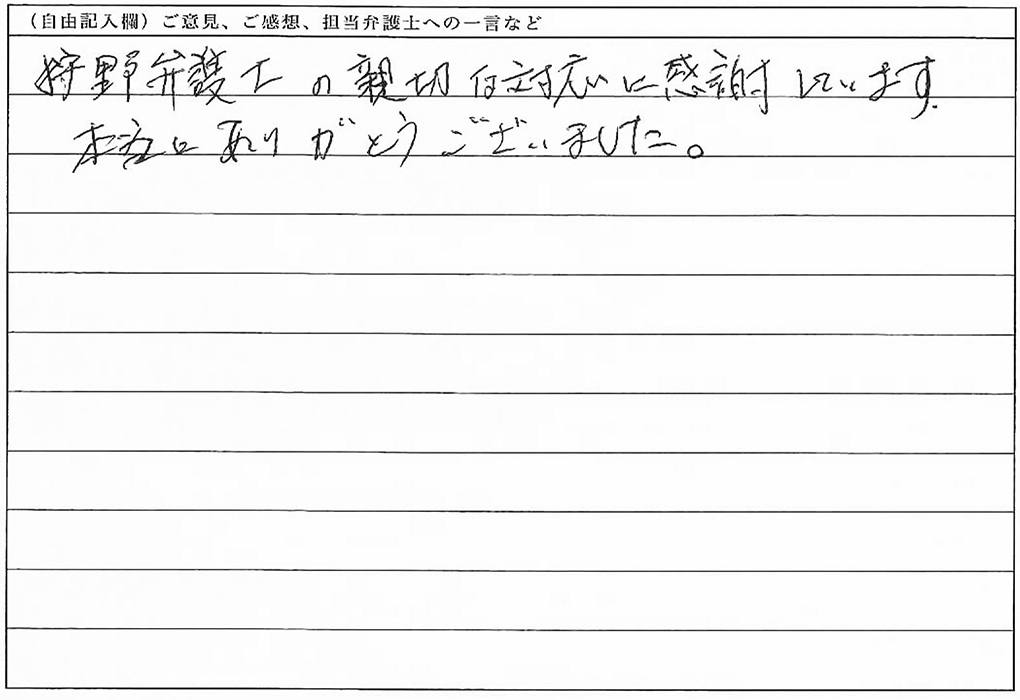 （自由記入欄）ご意見、ご感想、担当弁護士への一言など
狩野弁護士の親切な対応に感謝しています。
本当にありがとうございました。